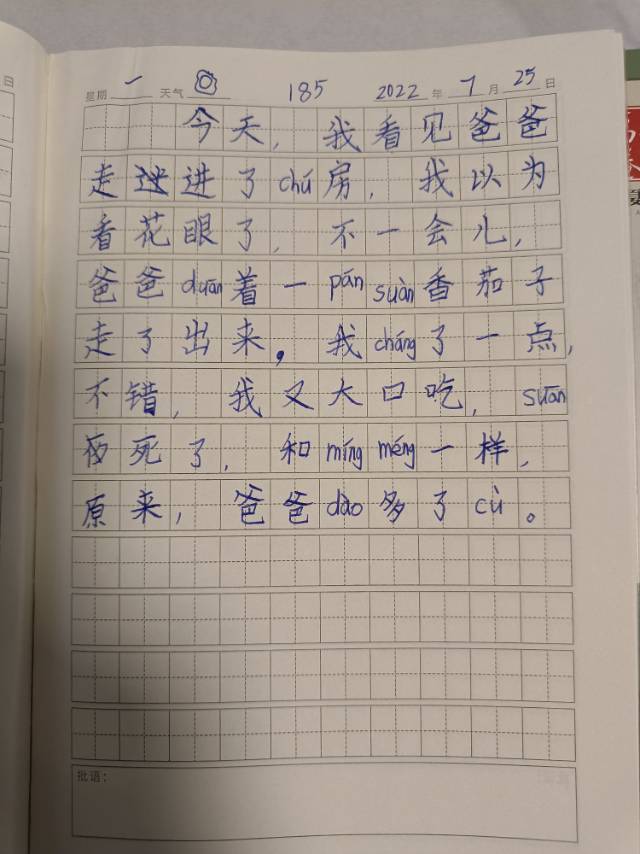 星期 一 天气 185 2022 年 7 月 25 日
今天，我看见爸爸
走进了chú房，我以为
看花眼了，不一会儿，
爸爸duān着一pán suàn香茄子
走了出来，我cháng了一点，
不错，我又大口吃，suān
死了，和míng méng一样，
原来，爸爸dào多了cù。
批语：